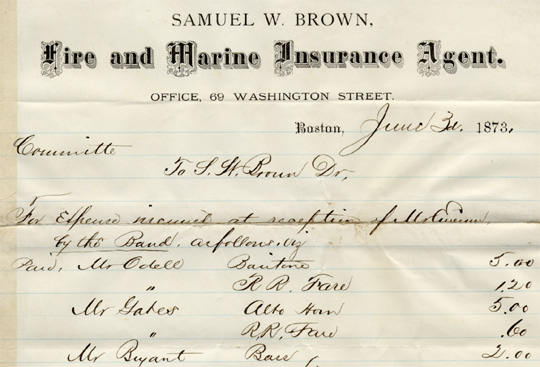 SAMUEL W. BROWN,
Fire and Marine Insurance Agent.
OFFICE, 69 WASHINGTON STREET.
Boston, June 3d. 1873.
Committe
To S. W. Brown Dr,
For Expense incurred at reception of
by the Band, as follows, viz
Paid, Mr Odell Baritone 5.00
" R R. Fare 1.20
Mr Gates Alto Horn 5.00
" R.R. Fare .60
Mr Bryant Bass 2.00